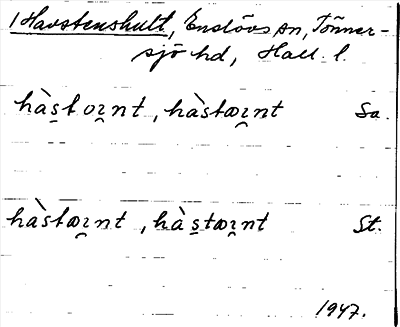 1 Havstenshult, Enslövs sn, Tönner-
sjö hd, Hall. l.
hàs̱toɪ̯nt, hàstœɪ̯nt Sa.
hàstœɪ̯nt, hàs̱tœɪ̯nt St.
1947.